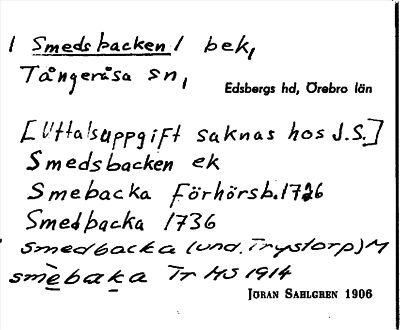 / Smedsbacken / bek,
Tångeråsa sn,
Edsbergs hd, Örebro län
[Uttalsuppgift saknas hos J.S.]
Smedsbacken ek
Smebacka Förhörsb. 1726
Smedbacka 1736
Smedbacka (und. Trystorp) M
smèbaka Tr HS 1914
JÖRAN SAHLGREN 1906